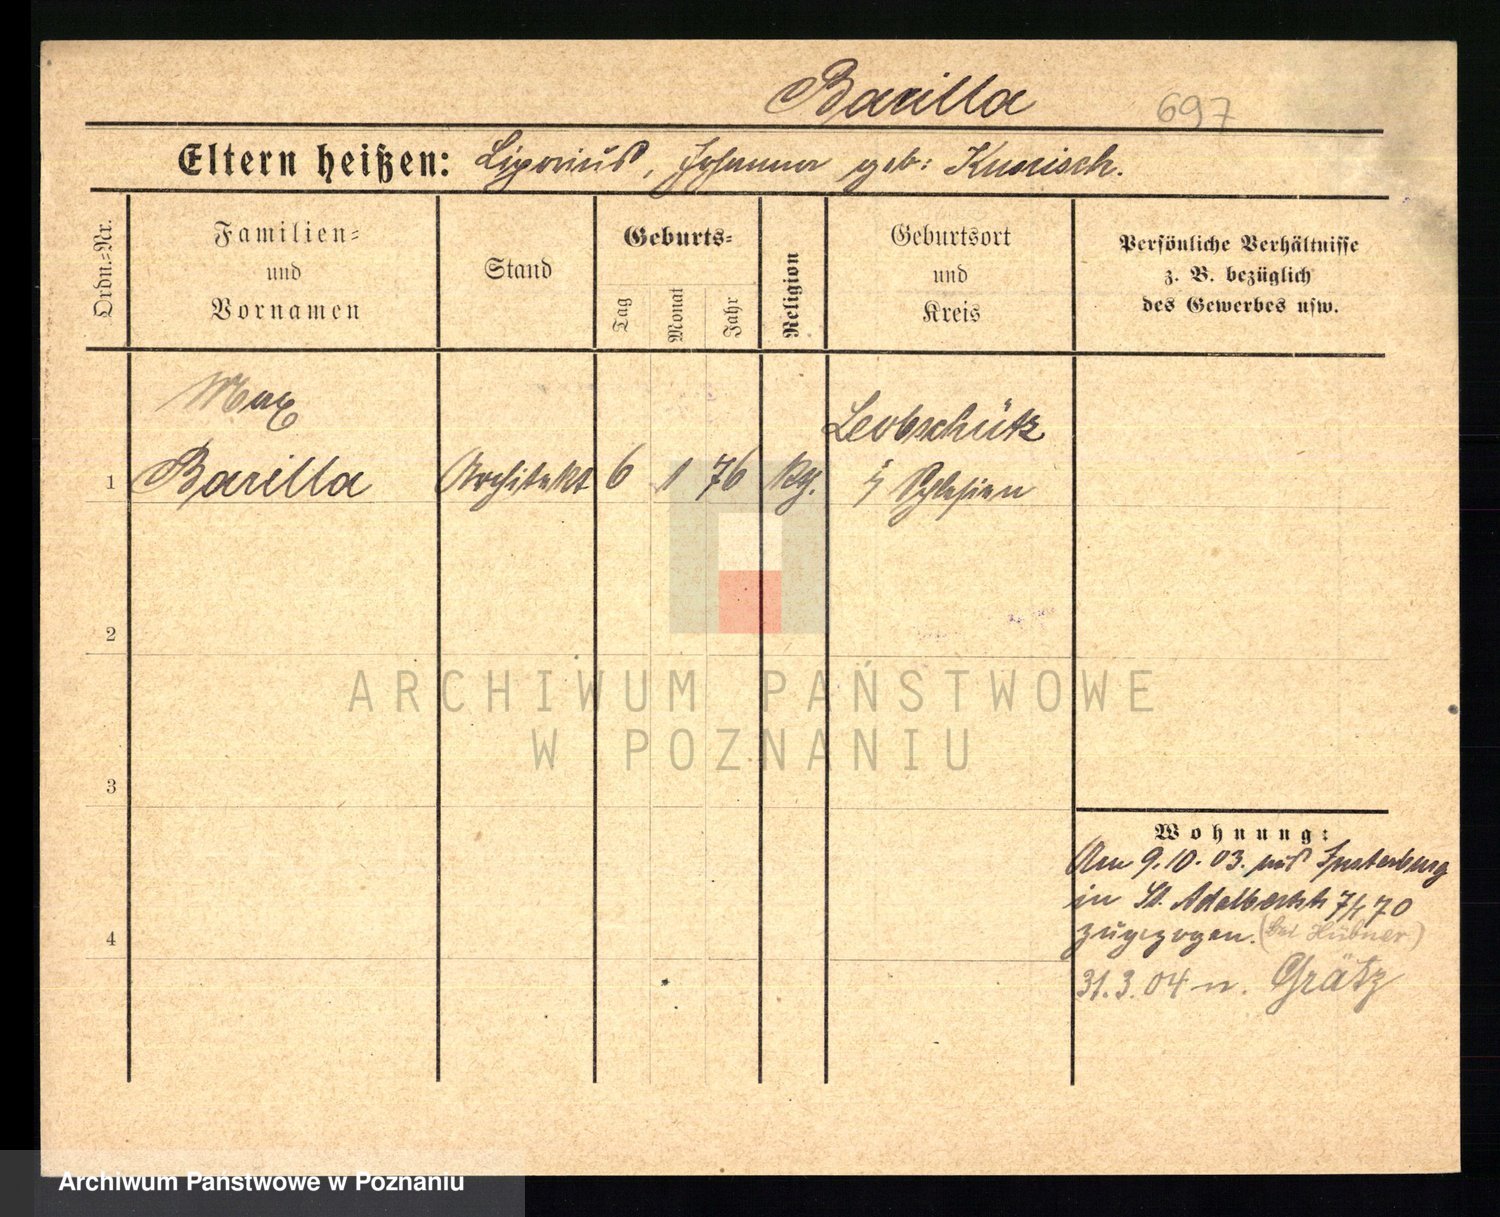 Barilla
697
Eltern heißen: Ligorius, Johanna geb: Kunisch.
Ordn.-Nr.
Familien-
und
Vornamen
Stand
Geburts-
Tag
Monat
Jahr
Religion
Geburtsort
und
Kreis
Persönliche Verhältnisse
z. B. bezüglich
des Gewerbes usw.
Max
1 Barilla Architekt 6 1 76 kth.
Leobschütz
i/ Schlesien
2
3
4
ARCHIWUM PAŃSTWOWE
W POZNANIU
Wohnung:
Am 9.10.03. aus Insterburg
in St. Adalbertstr 7/70
zugezogen. (bei Hübner)
31.3.04 n. Grätz
Archiwum Państwowe w Poznaniu